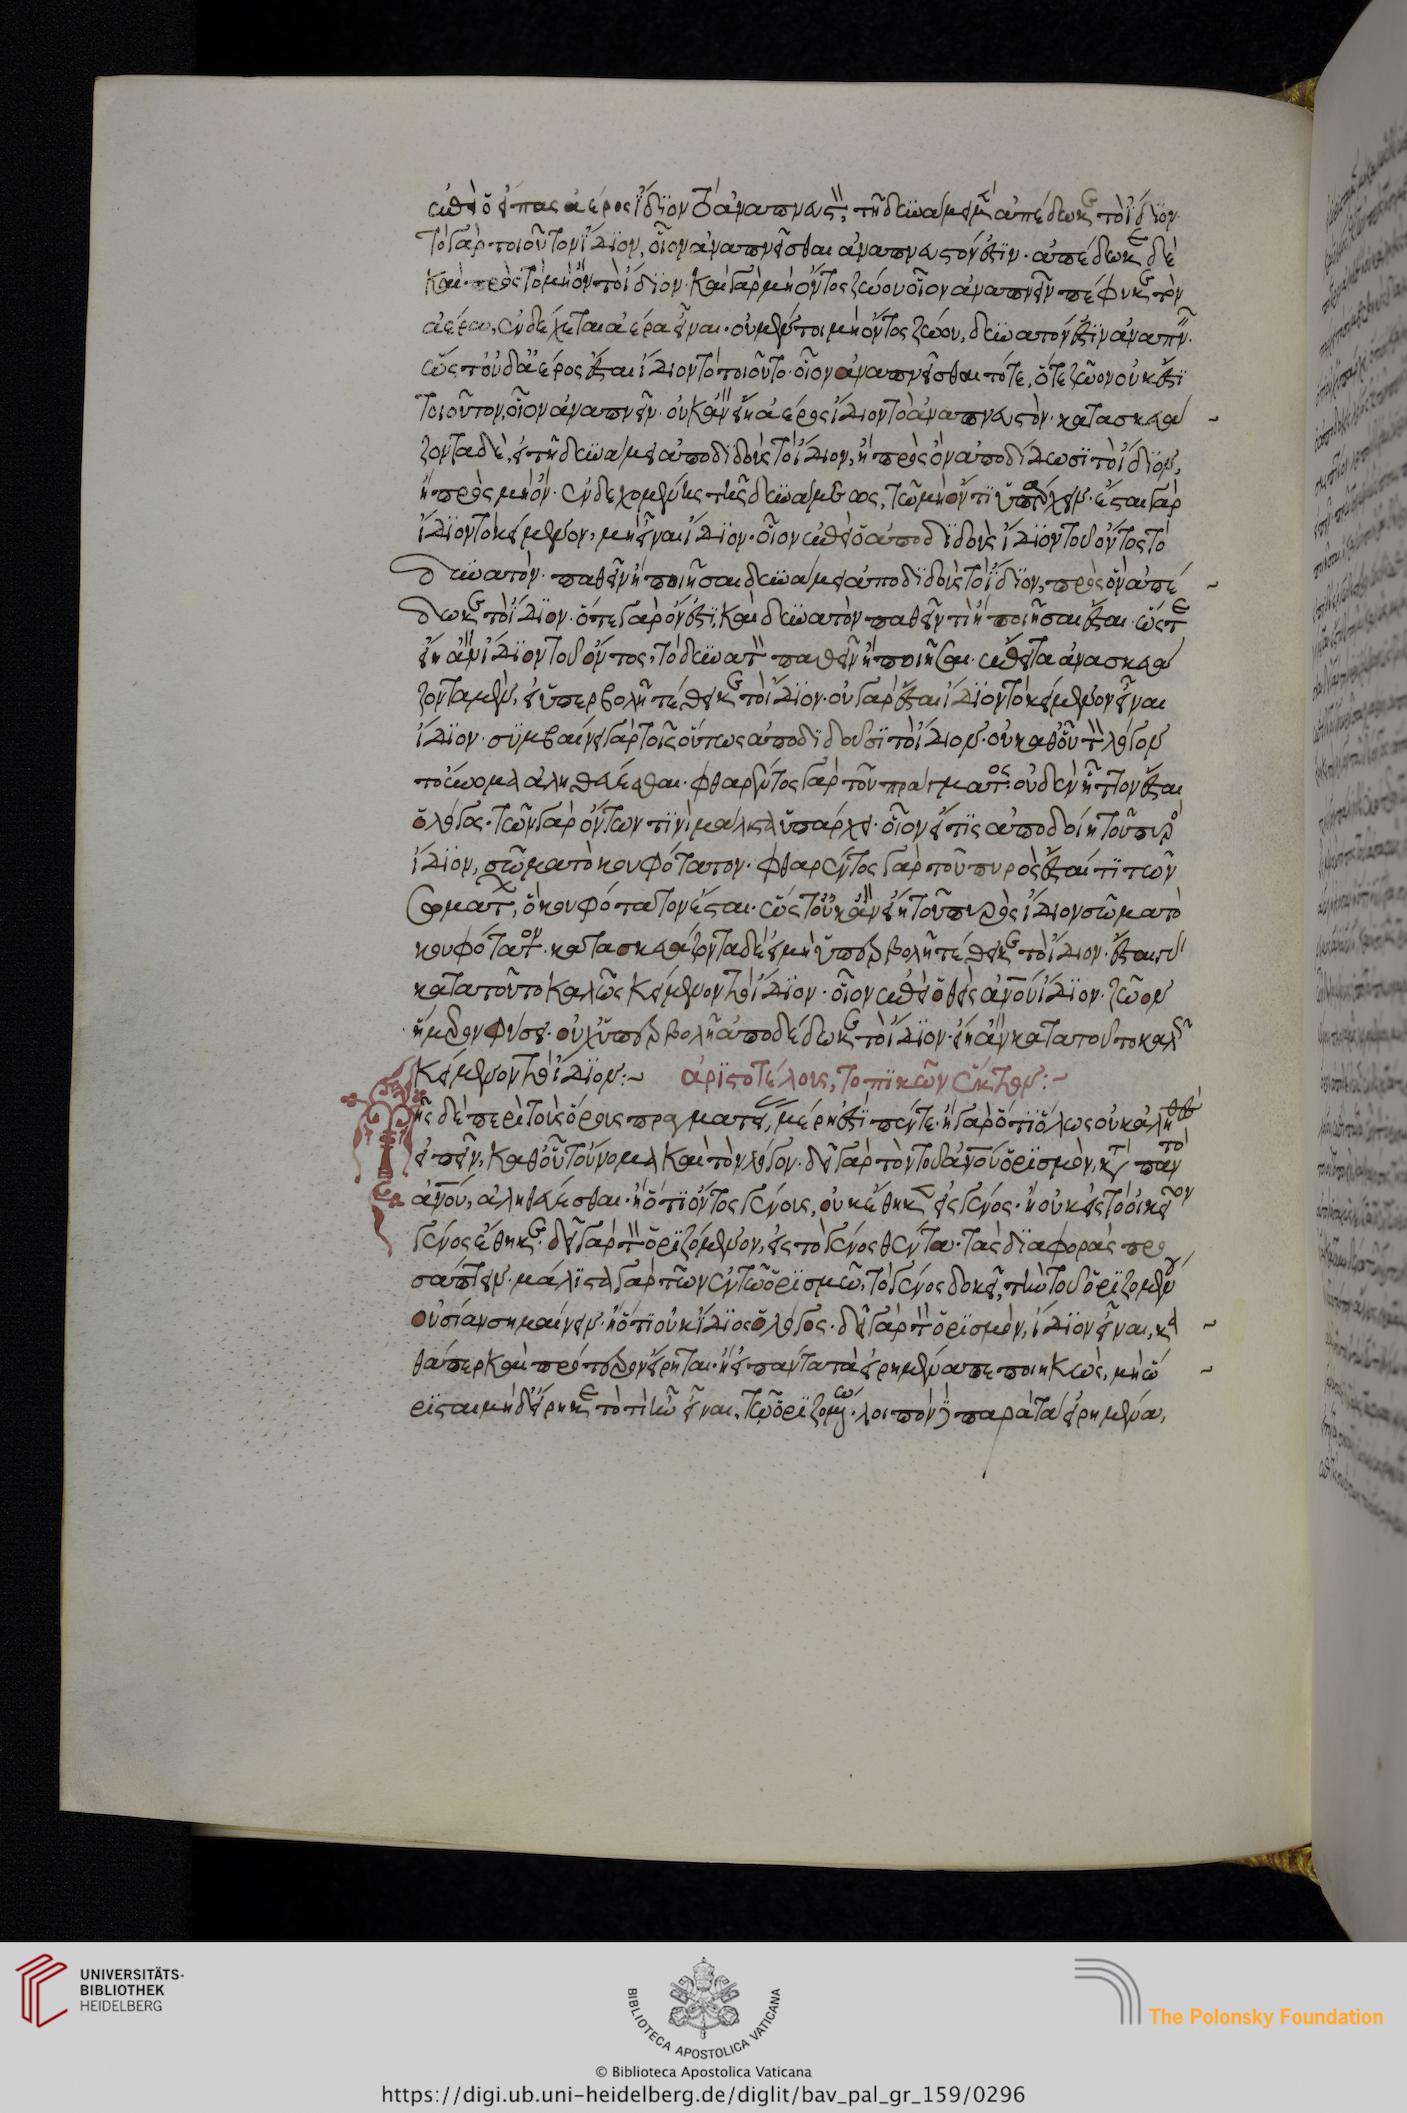 ἐπεὶ ὁ εἴπας ἀέρος ἴδιον τὸ ἀναπνευστόν, τῆ δυνάμει μὲν ἀπέδωκε τὸ ἴδιον
τὸ γὰρ τοιοῦτον ἴδιον, οἷον ἀναπνεῖσθαι ἀναπνευστόν ἐστιν· ἀπέδωκε δὲ
καὶ πρὸς τὸ μὴ ὂν τὸ ἴδιον· καὶ γὰρ μὴ ὄντος ζώου οἷον ἀναπνεῖν πέφυκε τὸν
ἀέρα, ἐνδέχεται ἀέρα εἶναι· οὐ μέντοι μὴ ὄντος ζώου, δυνατόν ἐστιν ἀναπνεῖν·
ὥστ' οὐδ' ἀέρος ἔσται ἴδιον τὸ τοιοῦτο· οἷον ἀναπνεῖσθαι τότε, ὅτε ζῶον οὐκ ἔστι
τοιοῦτον, οἷον ἀναπνεῖν· οὐκ ἂν εἴη ἀέρος ἴδιον τὸ ἀναπνευστὸν· κατασκευά
ζοντα δὲ, εἰ τῆ δυνάμει ἀποδιδοὺς τὸ ἴδιον, ἢ πρὸς ὂν ἀποδίδωσι τὸ ἴδιον,
ἢ πρὸς μὴ ὂν· ἐνδεχομένης τῆς δυνάμεως, τῶ μὴ ὄντι ὑπάρχειν· ἔσται γὰρ
ἴδιον τὸ κείμενον, μὴ εἶναι ἴδιον· οἷον ἐπεὶ ὁ ἀποδιδοὺς ἴδιον τοῦ ὄντος τὸ
δυνατὸν· παθεῖν ἢ ποιῆσαι δυνάμει ἀποδιδοὺς τὸ ἴδιον, πρὸς ὂν ἀπέ
δωκε τὸ ἴδιον· ὅτε γὰρ ὄν ἐστι, καὶ δυνατὸν παθεῖν τὶ ἢ ποιῆσαι ἔσται· ὥστε
εἴη ἂν ἴδιον τοῦ ὄντος, τὸ δυνατὸν παθεῖν ἢ ποιῆσαι· ἔπειτα ἀνασκευά
ζοντα μὲν, εἰ ὑπερβολῆ τέθεικε τὸ ἴδιον· οὐ γὰρ ἔσται ἴδιον τὸ κείμενον εἶναι
ἴδιον· συμβαίνει γὰρ τοῖς οὕτως ἀποδιδοῦσι τὸ ἴδιον· οὐ καθ' οὗ τὸν λόγον
τοὔνομα ἀληθεύεσθαι· φθαρέντος γὰρ τοῦ πράγματος οὐδὲν ἧττον ἔσται
ὁ λόγος· τῶν γὰρ ὄντων τινὶ μάλιστα ὑπάρχει· οἷον εἴ τις ἀποδοίη τοῦ πυρὸς
ἴδιον, σῶμα τὸ κουφότατον· φθαρέντος γὰρ τοῦ πυρὸς ἔσται τι τῶν
σωμάτων, ὃ κουφότατον ἔσται· ὥστ' οὐκ ἂν εἴη τοῦ πυρὸς ἴδιον σῶμα τὸ
κουφότατον· κατασκευάζοντα δὲ εἰ μὴ ὑπερβολῆ τέθεικε τὸ ἴδιον· ἔσται γὰρ
κατα τοῦτο καλῶς κείμενον τὸ ἴδιον· οἷον ἐπεὶ ὁ θεὶς ἀνου ἴδιον· ζῶον
ἥμερον φύσει· οὐχ ὑπερβολῆ ἀποδέδωκε τὸ ἴδιον· εἴη ἂν κατα τουτο καλῶς
κείμενον τὸ ἴδιον:~ ἀριστοτέλους, τοπικῶν ἕκτον:~
Τῆς δὲ περὶ τοὺς ὅρους πραγματείας, μέρη ἐστὶ πέντε· ἢ γὰρ ὅτι ὅλως οὐκ ἀληθὲς
εἰπεῖν, καθ' οὗ τοὔνομα καὶ τὸν λόγον· δεῖ γὰρ τὸν τοῦ ἀνου ὁρισμὸν, κατὰ παντὸς
ἀνου, ἀληθεύεσθαι· ἢ ὅτι ὄντος γένους, οὐκ ἔθηκεν εἰς γένος· ἢ οὐκ εἰς τὸ οἰκεῖον
γένος ἔθηκε· δεῖ γὰρ τὸν ὁριζόμενον, εἰς τὸ γένος θέντα· τὰς διαφορὰς προ
σάπτειν· μάλιστα γὰρ τῶν ἐν τῶ ὁρισμῶ, τὸ γένος δοκεῖ, τὴν τοῦ ὁριζομένου
οὐσίαν σημαίνειν· ἢ ὅτι οὐκ ἴδιος ὁ λόγος· δεῖ γὰρ τὸν ὁρισμὸν, ἴδιον εἶναι, κα
θάπερ καὶ πρότερον εἴρηται· ἢ εἰ πάντα τὰ εἰρημένα πεποιηκὼς, μὴ ὥ
ρισται μὴ δ' εἴρηκε τὸ τί ἦν εἶναι, τῶ ὁριζομένω· λοιπὸν δὲ παρὰ τὰ εἰρημένα,
UNIVERSITÄTS-
BIBLIOTHEK
HEIDELBERG
BIBLIOTECA APOSTOLICA VATICANA
The Polonsky Foundation
© Biblioteca Apostolica Vaticana
https://digi.ub.uni-heidelberg.de/diglit/bav_pal_gr_159/0296